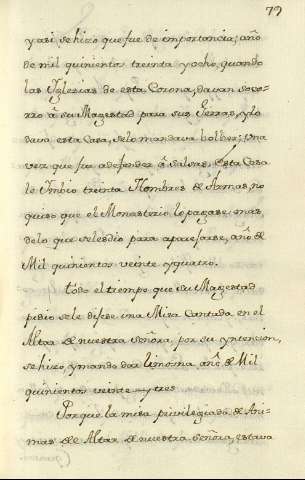 79
y asi se hizo que fue de importancia; año
de mil quinientos treinta y ocho, quando
las Yglesias de esta Corona, davan soco-
rro â su Magestad para sus Gerras, y lo
dava esta Casa, selo mandava bolber; Una
vez que fue a defender â Salses, esta Casa
le Ymbio treinta Hombres de Armas, no
quiso que el Monasterio lo pagase mas,
delo que seles dio para aparejarse, año de
Mil quinientos veinte y quatro.
todo el tiempo que su Magestad
pidio sele dijese una Misa Cantada en el
Altar de nuestra Señora, por su yntencion,
se hizo, y mando dar limosna año de Mil
quinientos veinte y tres
Porque la misa privilegiada de Ani-
mas de el Altar de nuestra Señora, estava